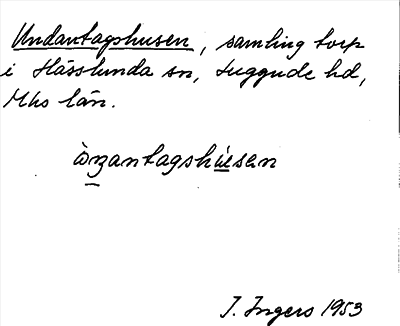 Undantagshusen, samling torp
i Hässlunda sn, Luggude hd,
Mhs län.
ònantagshúsen
I. Ingers 1953